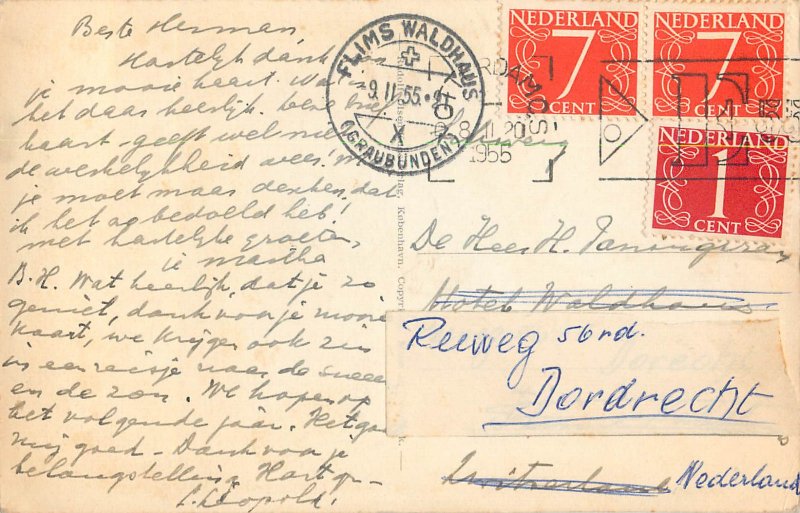 Beste Herman,
Hartelijk dank voor
je mooie kaart. Wat is
het daar heerlijk. Deze
kaart geeft wel niet
de werkelijkheid weer!
je moet maar denken, dat
ik het zo bedoeld heb!
met hartelijke groeten,
je Martha
B.H. Wat heerlijk, dat je zo
geniet, dank voor je mooie
kaart, we krijgen ook zin
in een reisje naar de sneeuw
en de zon. We hopen op
het volgende jaar. Het gaat
mij goed - Dank voor je
belangstelling Hart. gr-
L. Leopold.
FLIMS WALDHAUS
9.II.55.
X
(GRAUBÜNDEN)
8.II.20
1955
NEDERLAND
7
CENT
NEDERLAND
7
CENT
NEDERLAND
1
CENT
København.
De Heer H.
Hotel Waldhaus
Reeweg 56rd.
Dordrecht
Zwitserland
Nederland